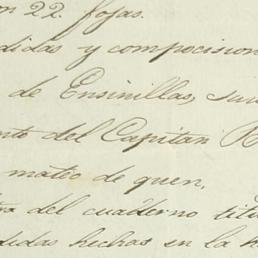 on 22. fojas.
didas y compocision
de Ensinillas, su
nto del Capitan
mateo de quen,
del cuaderno titu
didas hechas en la